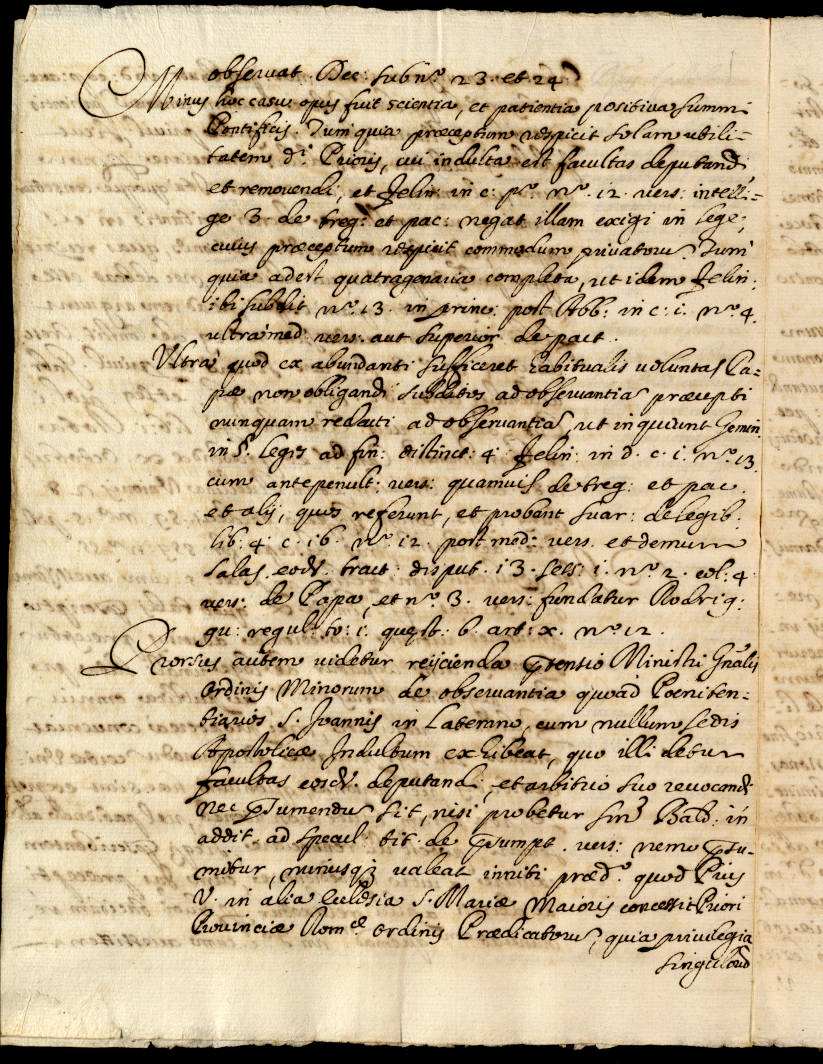 observat Dec: sub n.º 23. et 24
Minus hoc casu opus fuit scientia, et patientia positiva summi
Pontificis. Tum quia præceptum respicit solam utili=
tatem d.ⁱ Prioris, cui indulta est facultas deputandi
et removendi, et Felin: in c: p.º n.º 12. vers: intelli=
ge 3. de treg: et pac: negat illam exigi in lege,
cuius præceptum respicit commodum privatorũ. Tum
quia adest quatragenaria completa, ut idem Felin:
ibi subdit n.º 13. in princ: post Abb: in c: i. n.º 4.
ultra med: vers: aut superior de pact.
Ultra quod ex abundanti sufficeret habitualis voluntas Pa=
pæ non obligandi subditos ad observantiã præcepti
nunquam redacti ad observantiã, ut inquiunt Gemin:
in §. leges ad fin: distinct: 4. Felin: in d. c. i. n.º 13.
cum antepenult: vers: quamuis de treg: et pac.
et alij, quos referunt, et probant Suar: de legib:
lib: 4. c. 16. n.º 12. post med: vers. et demum
Salas eod. tract: disput. 13. sect: i. n.º 2. col: 4
vers: de Papa, et n.º 3. vers: fundatur Rodrig:
qu: regul: to: i. quæst: 6. art: x. n.º 12.
Prorsus autem videtur reijcienda p̃tensio Ministri Gñalis
Ordinis Minorum de observantia quoad Pœniten=
tiarios S. Joannis in Laterano, cum nullum Sedis
Apostolicæ Indultum exhibeat, quo illi detur
facultas eosd. deputandi, et arbitrio suo revocandi
nec p̃sumendũ sit, nisi probetur sm̃ Bald: in
addit. ad specul: tit. de p̃sumpt. vers: nemo p̃su=
mitur, minusq; valeat inniti præd.º quod Pius
V. in alia Ecclesia S. Mariæ Maioris concessit Priori
Provinciæ Rom.æ Ordinis Prædicatorũ, quia privilegia
singulorũ